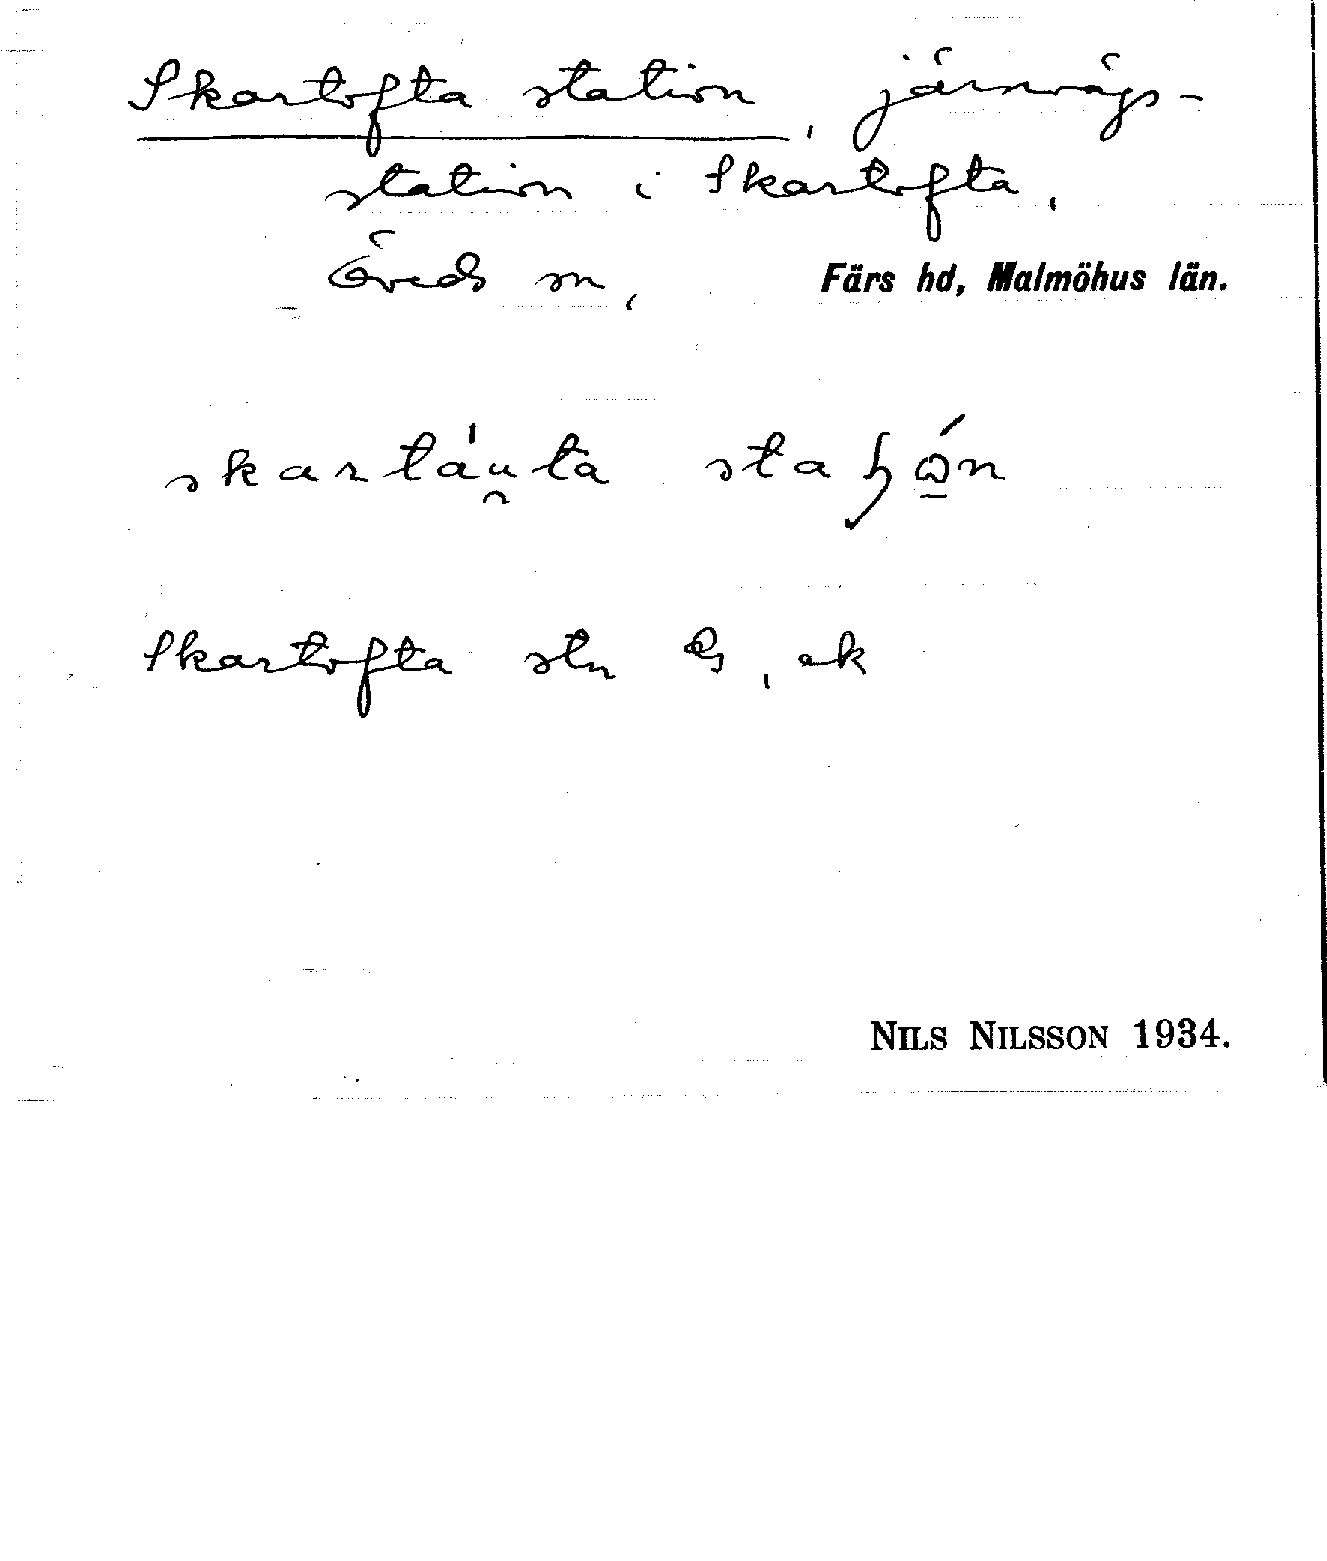 Skartofta station, järnvägs-
station i Skartofta,
Öveds sn, Färs hd, Malmöhus län.
skartáu̯ta staɧώ̲n
Skartofta stn GS, ek
NILS NILSSON 1934.